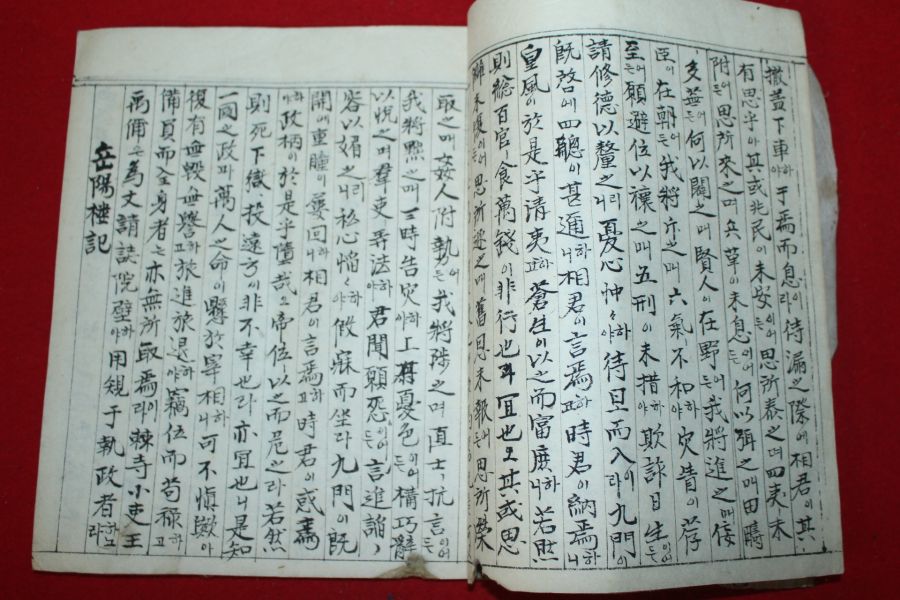 撤盖下車하야于焉而息이라待漏之際에相君이其
有思乎아其或兆民이未安이어든思所泰之며四夷未
附어든思所來之며兵革이未息이어든何以弭之며田疇
多蕪어든何以闢之며賢人在野어든我將進之며佞
臣이在朝어든我將斥之며六氣不和하야灾眚이荐
至어든願避位以禳之며五刑이未措하야欺詐日生이어든
請修德以釐之리憂心忡々하야待旦而入이라九門이
既啓에四聰이甚邇하니相君이言焉하고時君이納焉하니
皇風이於是乎清夷하고蒼生이以之而富庶하니若然
則緫百官食萬錢이非行也라宜也오其或思
未復이어든思所逐之며舊恩未報어든思所榮
取之며姦人附執어든我將陟之며直士ヽ抗言이어든
我將黜之며三時告灾하야上有憂色이어든構巧辭
以悅之며羣吏弄法하야君聞願恐이어든言進諂ヽ
容以媚之니리私心慆々하야假寐而坐라九門이既
開에重瞳이屢回하니相君이言焉하고時君이惑焉
하야政柄이於是乎隳哉오帝位以之而危之라若然
則死下獄投遠方이非不幸也라亦宜也니是知
一國之政과萬人之命이懸於宰相하니可不愼歟아
復有無毀無譽하고旅進旅退하야竊位而苟祿하고
備員而全身者는亦無所取焉이라棘寺小吏王
禹偁은為文請誌院壁하야用規于執政者하노라
岳陽樓記